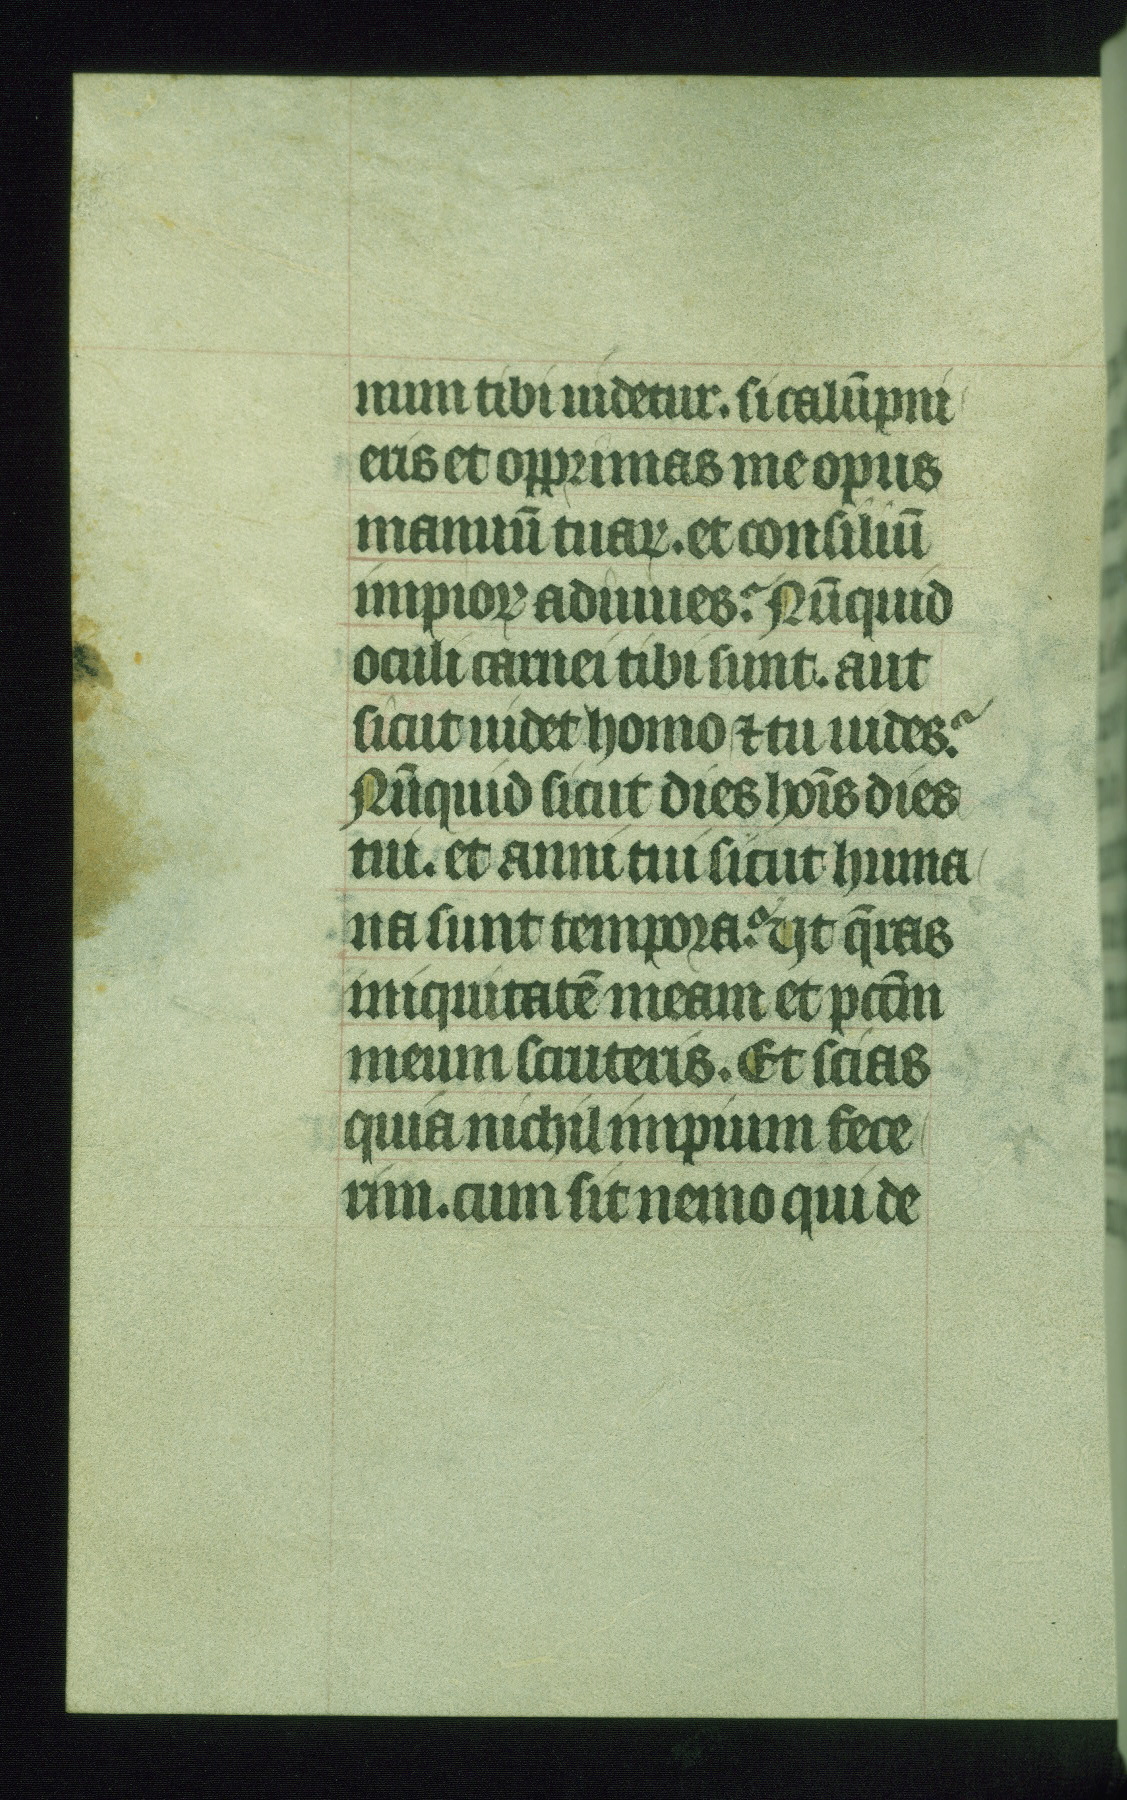 num tibi uidetur. si calūpni
eris et opprimas me opus
manuū tuaꝝ. et consiliū
impioꝝ adiuues? Nūquid
oculi carnei tibi sunt. aut
sicut uidet homo ⁊ tu uides?
Nūquid sicut dies hoīs dies
tui. et anni tui sicut huma
na sunt tempora? Ut q̄ras
iniquitatē meam et pctm̄
meum scruteris. Et scias
quia nichil impium fece
rim. cum sit nemo qui de